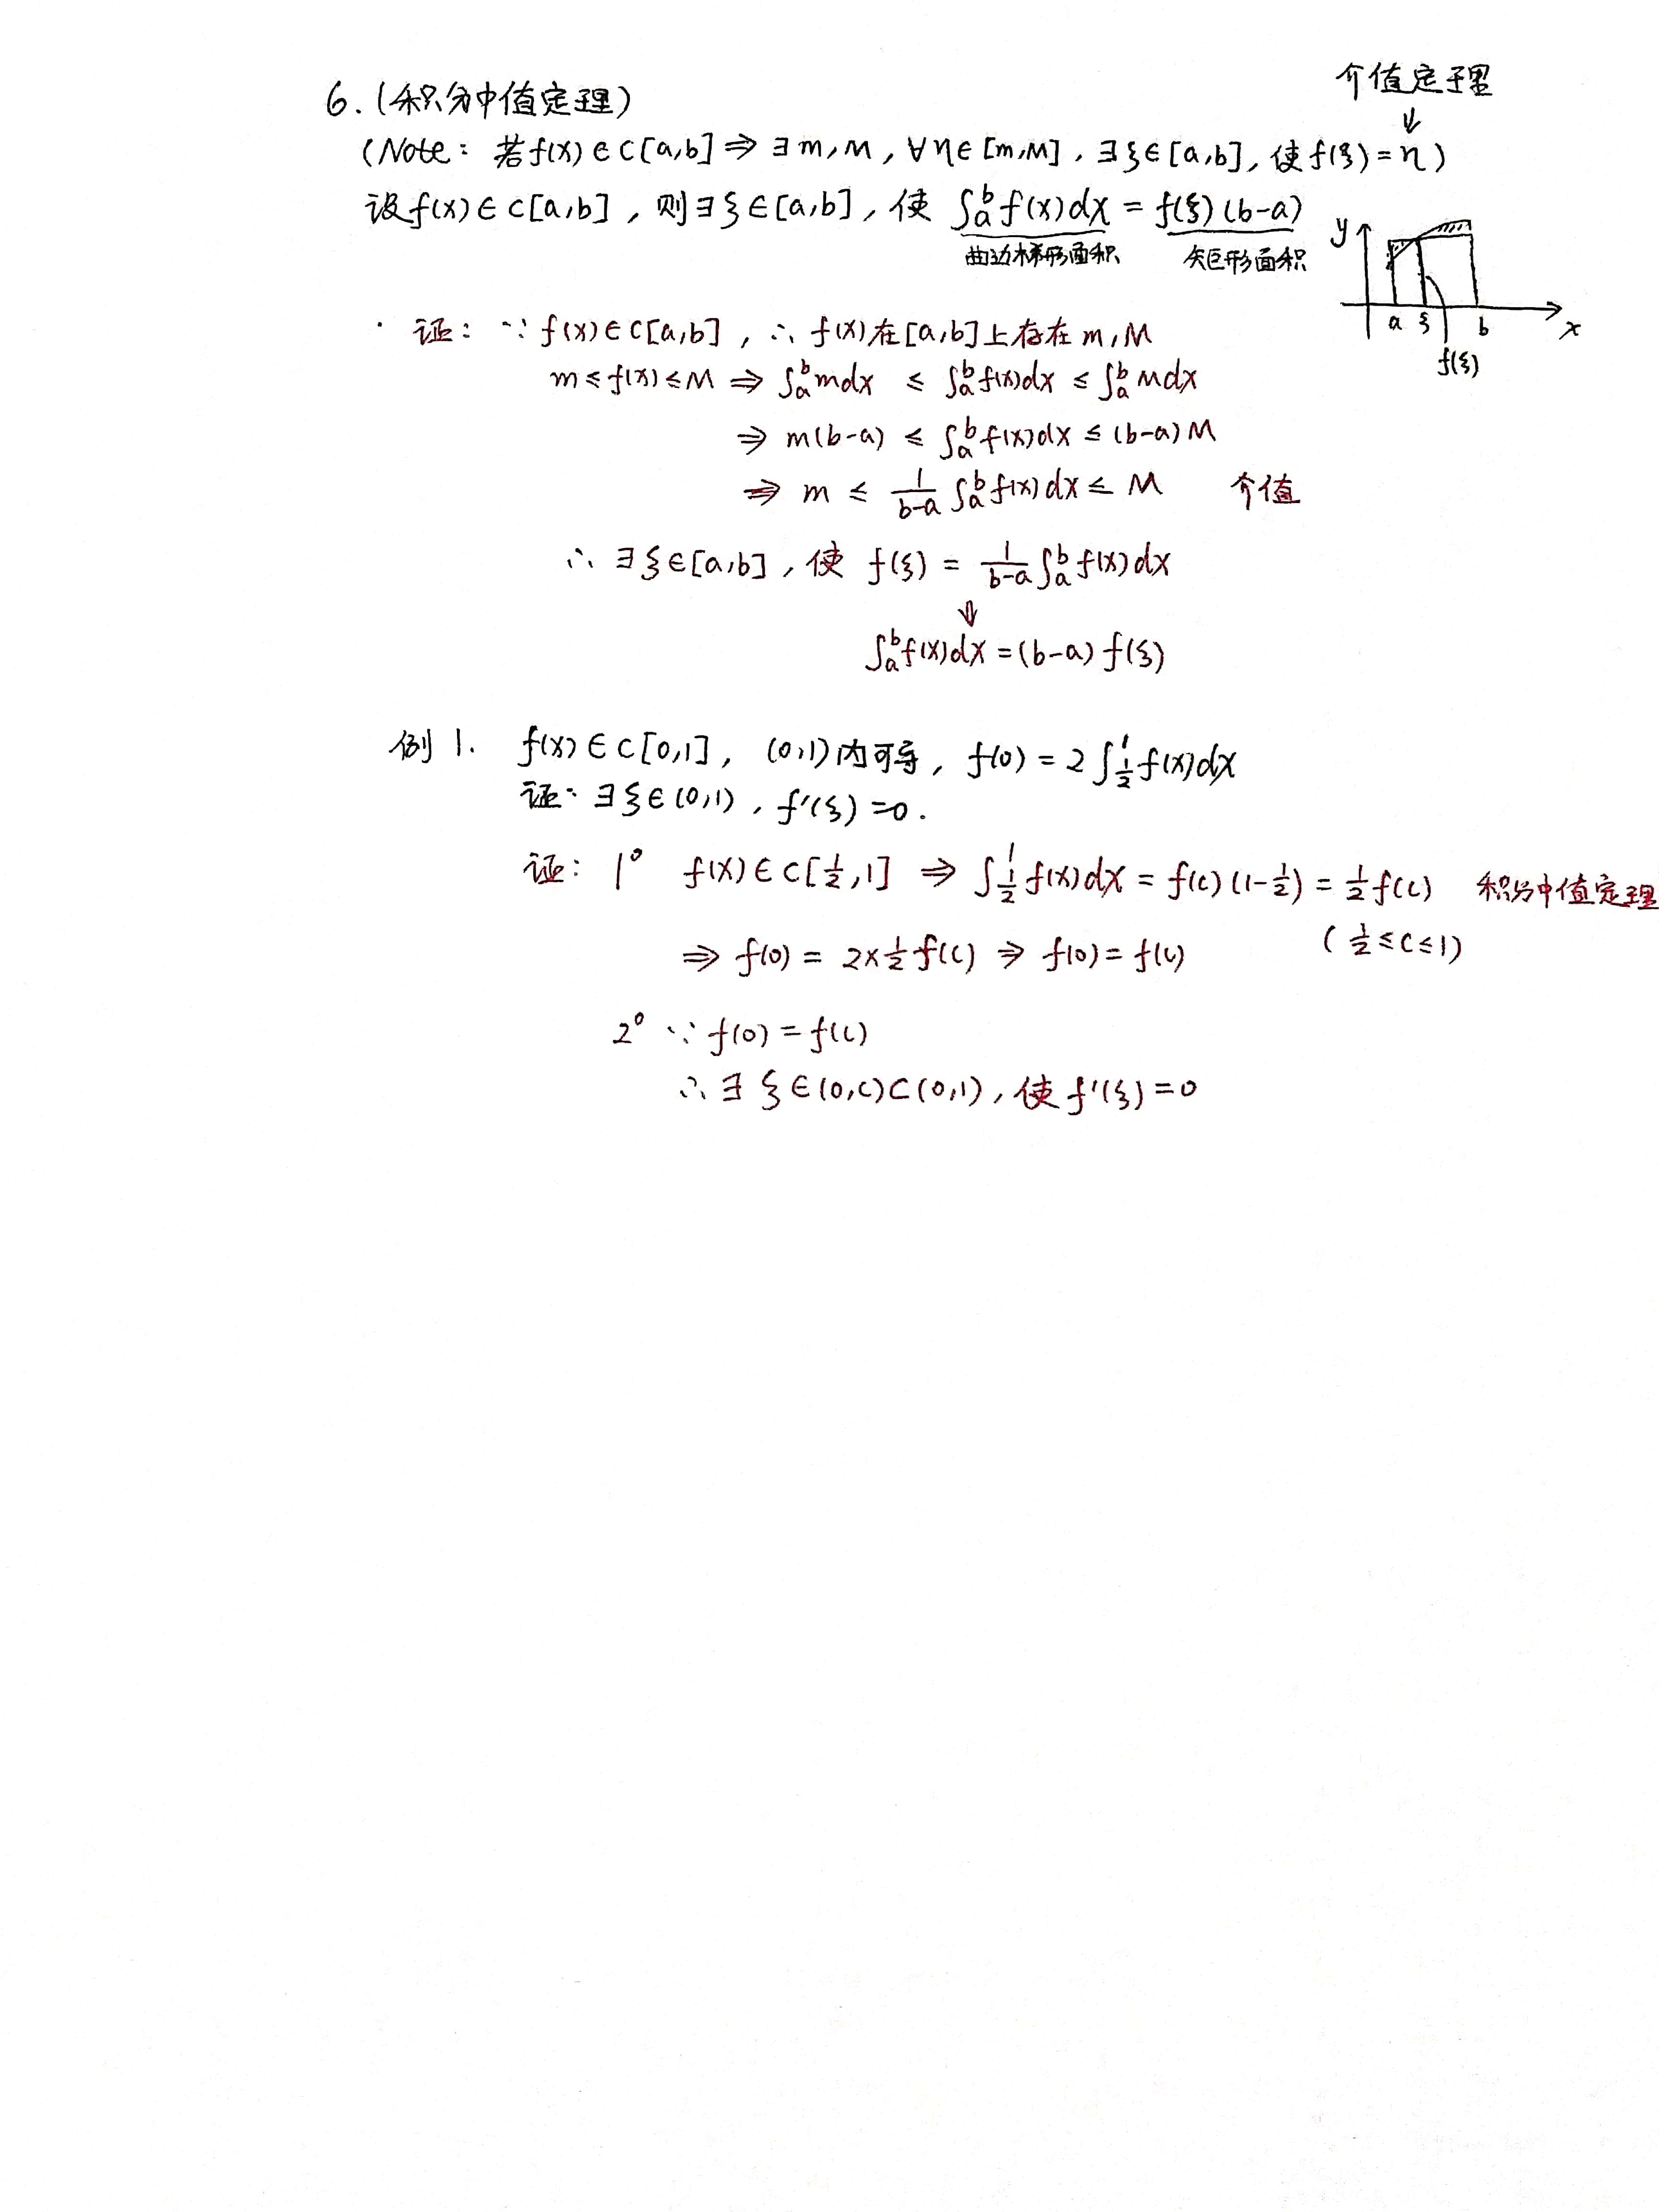 介值定理
↓
6.(积分中值定理)
(Note: 若f(x)∈C[a,b]⇒∃m,M,∀η∈[m,M],∃ξ∈[a,b],使f(ξ)=η)
设f(x)∈C[a,b],则∃ξ∈[a,b],使 ∫_a^b f(x)dx = f(ξ)(b-a)
曲边梯形面积 矩形面积
y
a ξ b x
f(ξ)
证: ∵ f(x)∈C[a,b], ∴ f(x)在[a,b]上存在m,M
m≤f(x)≤M ⇒ ∫_a^b mdx ≤ ∫_a^b f(x)dx ≤ ∫_a^b Mdx
⇒ m(b-a) ≤ ∫_a^b f(x)dx ≤ (b-a)M
⇒ m ≤ 1/(b-a) ∫_a^b f(x)dx ≤ M 介值
∴ ∃ξ∈[a,b],使 f(ξ) = 1/(b-a) ∫_a^b f(x)dx
⇓
∫_a^b f(x)dx=(b-a)f(ξ)
例1. f(x)∈C[0,1], (0,1)内可导, f(0)=2∫_{1/2}^1 f(x)dx
证: ∃ξ∈(0,1), f'(ξ)=0.
证: 1° f(x)∈C[1/2,1] ⇒ ∫_{1/2}^1 f(x)dx = f(c)(1-1/2) = 1/2 f(c) 积分中值定理
(1/2≤c≤1)
⇒ f(0) = 2×1/2 f(c) ⇒ f(0)=f(c)
2° ∵ f(0)=f(c)
∴ ∃ ξ∈(0,c)⊂(0,1),使f'(ξ)=0